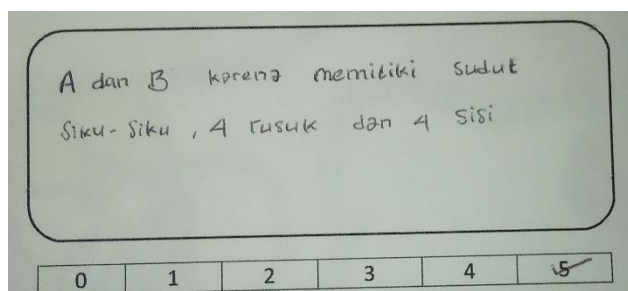 A dan B karena memiliki sudut
siku-siku, 4 rusuk dan 4 sisi
0 1 2 3 4 5